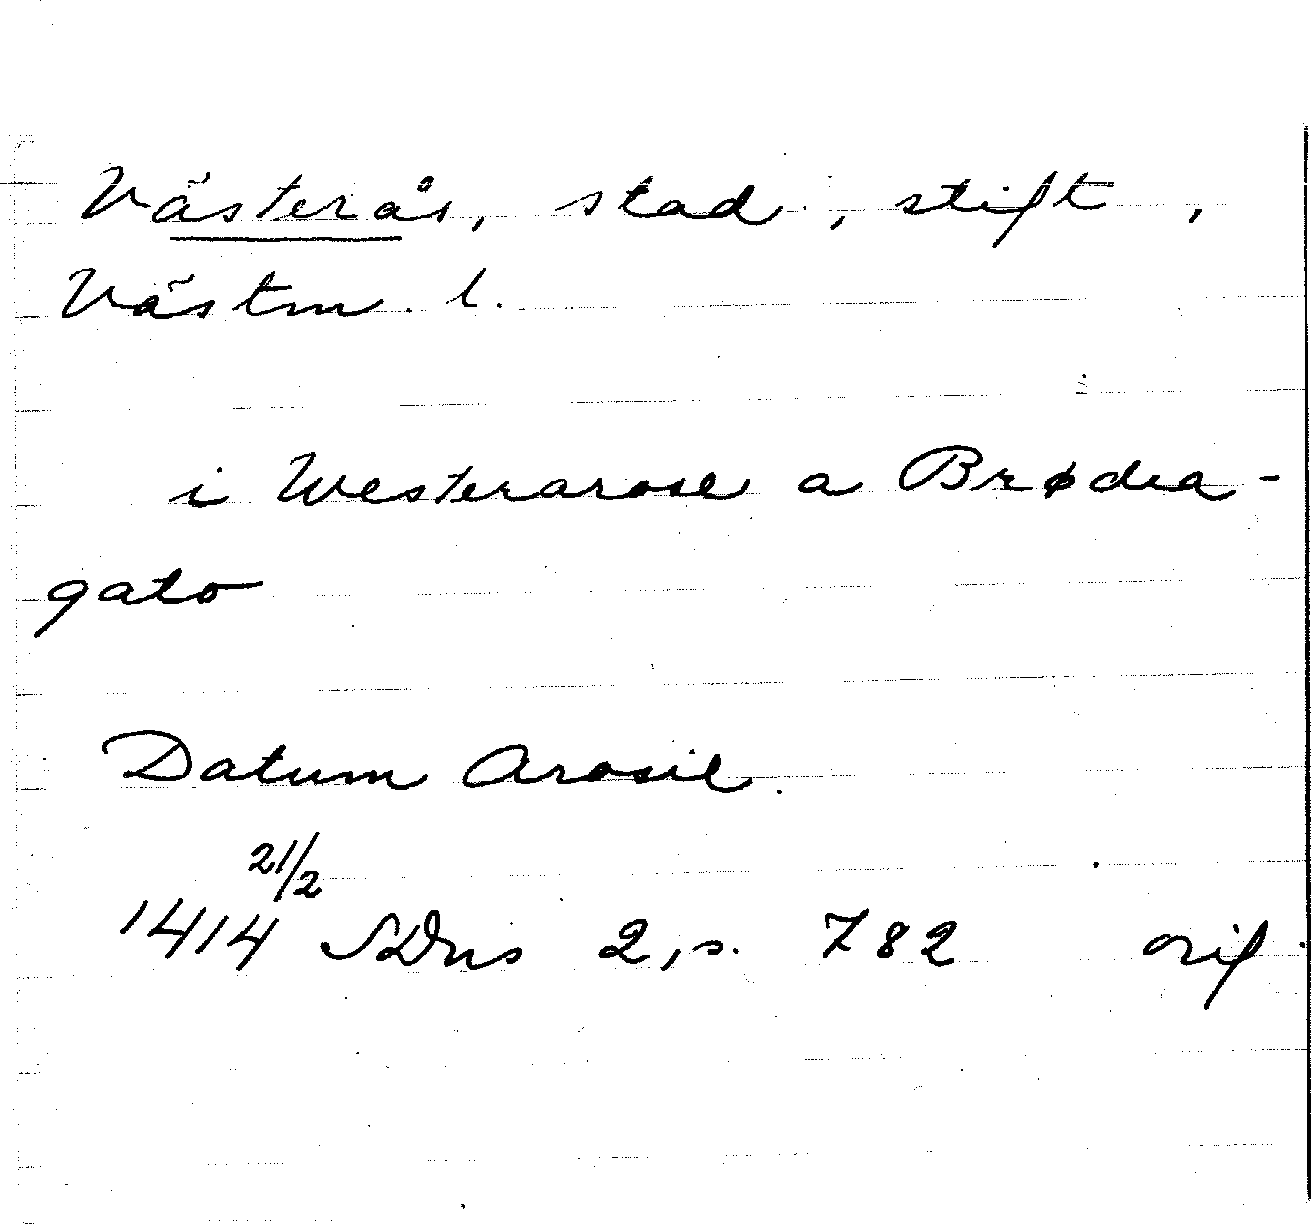 Västerås, stad, stift,
Västm. l.
i Westerarose a Brødra-
gato
Datum Arosie.
21/2
1414 SDns 2, s. 782 orig.